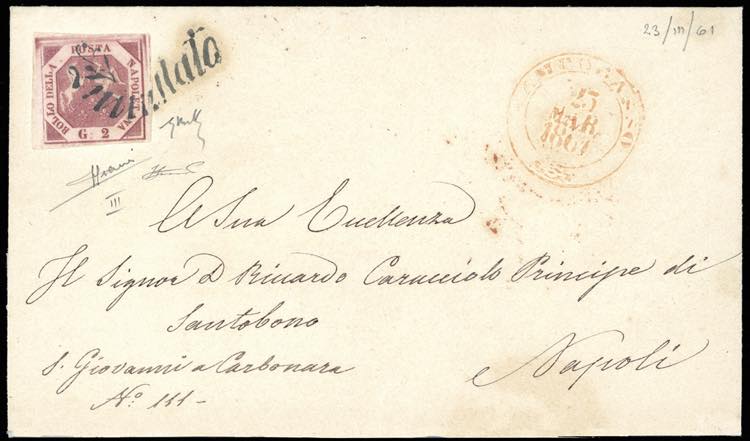 23/III/61
POSTA
NAPOLETANA
BOLLO DELLA
G. 2
Annullato
CAMPOBASSO
23
MAR.
1861
III
A Sua Eccellenza
Il Signor D Riccardo Caracciolo Principe di
Santobono
S. Giovanni a Carbonara
No. 111 -
Napoli